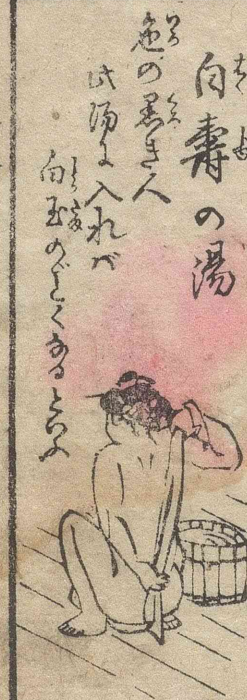 白寿の湯
色の黒き人
此湯に入れバ
白玉のごとくなるといふ